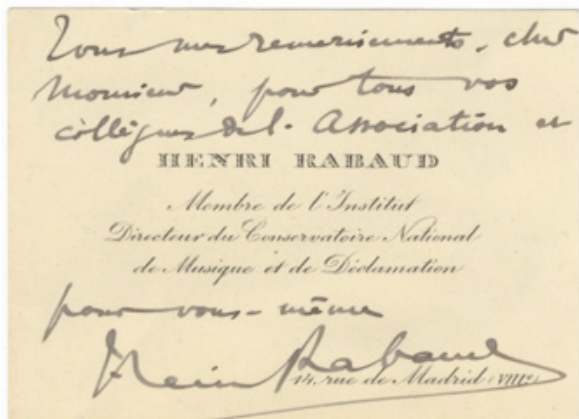 Tous mes remerciements, cher
Monsieur, pour tous vos
collègues de l'Association et
HENRI RABAUD
Membre de l'Institut
Directeur du Conservatoire National
de Musique et de Déclamation
pour vous-même
Henri Rabaud
14, rue de Madrid (VIIIe)